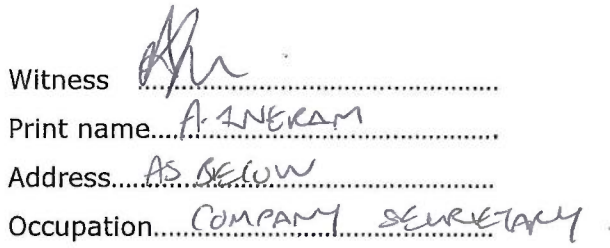 Witness
Print name.... A. INGRAM
Address.... AS BELOW
Occupation.... COMPANY SECRETARY